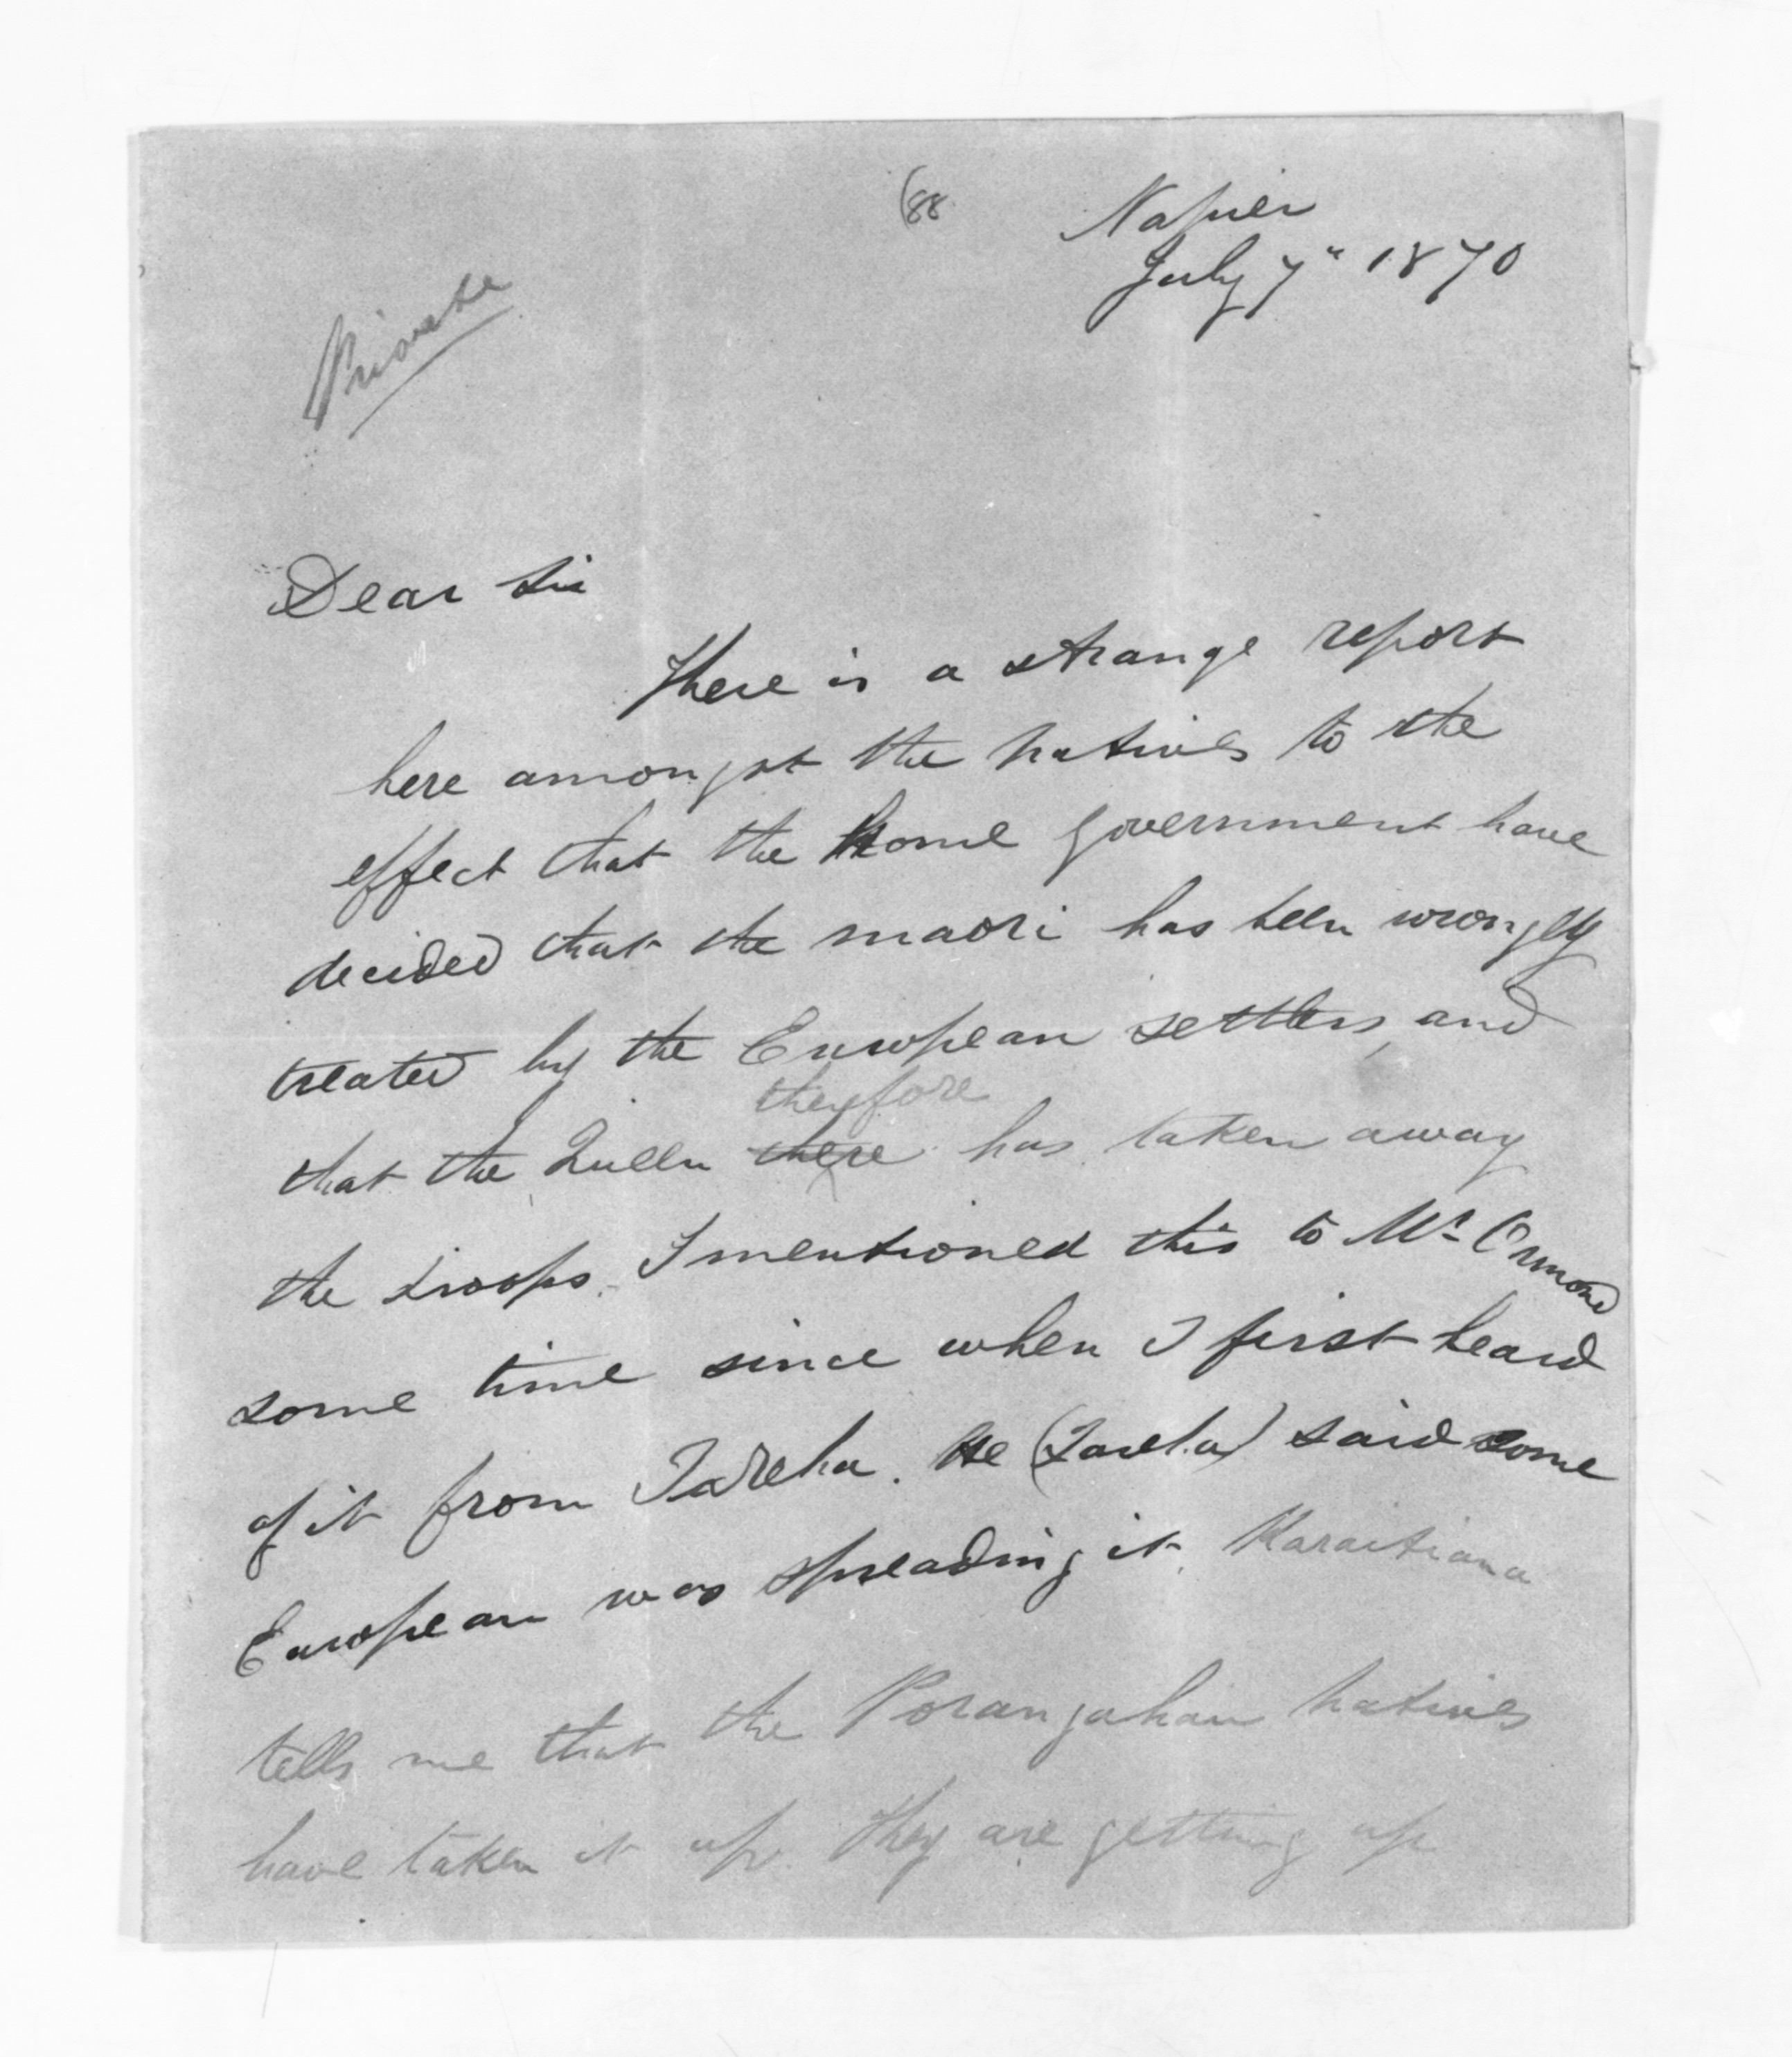 (88
Napier
July 7" 1870
Private
Dear Sir
There is a strange report
here amongst the natives to the
effect that the home government have
decided that the maori has been wrongly
treated by the European settlers, and
therefore
that the Queen there has taken away
the troops. I mentioned this to Mr Ormond
some time since when I first heard
of it from Tareha. He (Tareha) said some
European was spreading it. Karaitiana
tells me that the Porangahau natives
have taken it up. They are getting up